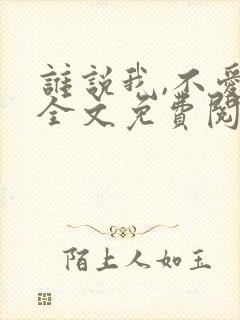 誰說我,不愛
全文免費閱
陌上人如玉